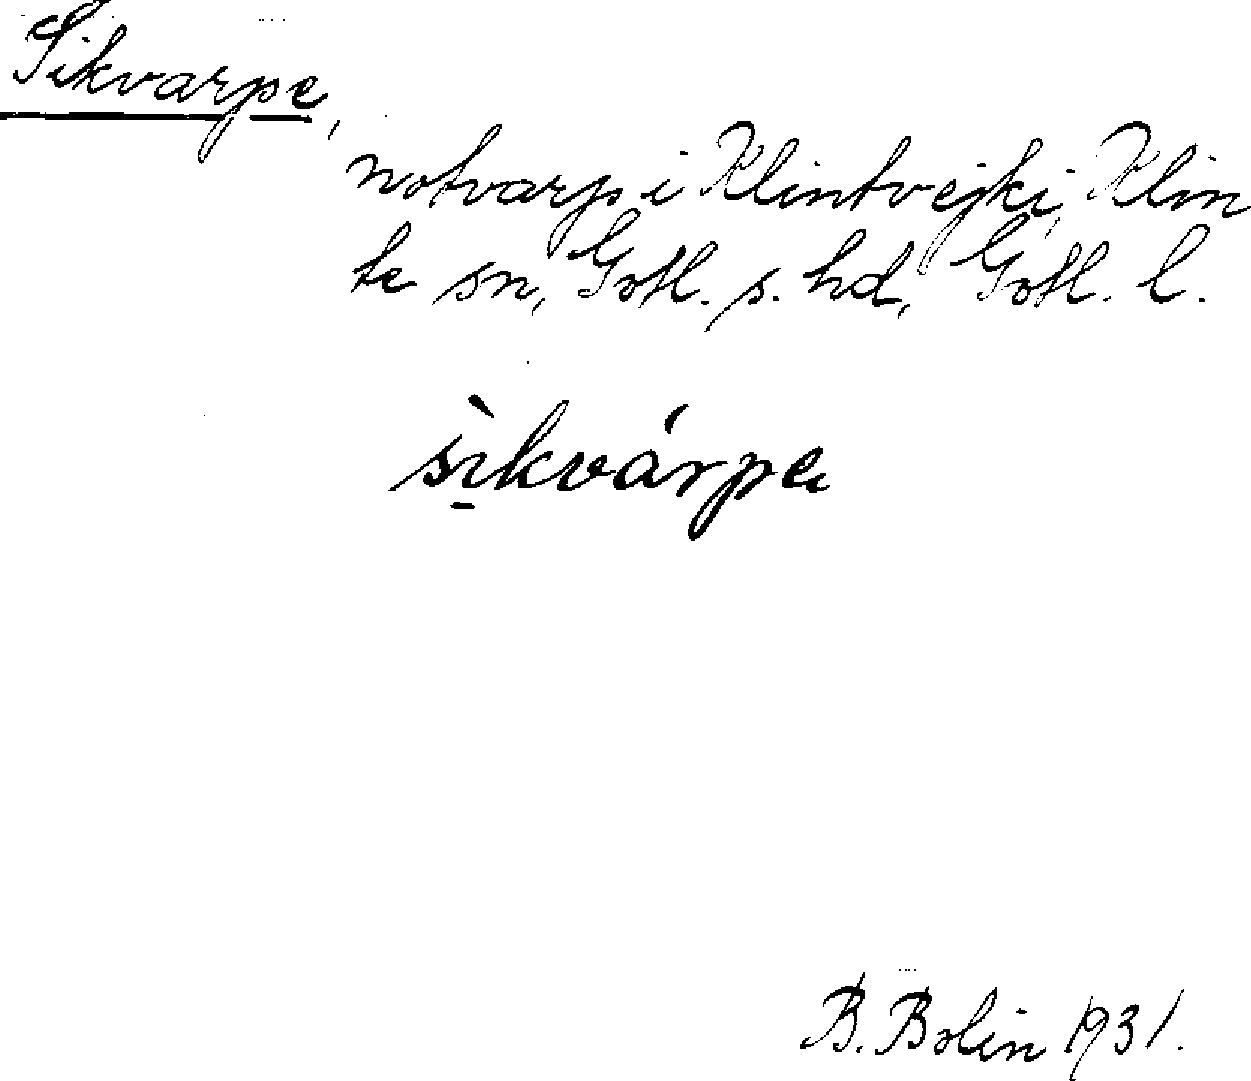 Sikvarpe,
notvarp i Klintvejki, Klin
te sn, Gotl. s. hd, Gotl. l.
sìkvárpe
B. Bolin 1931.